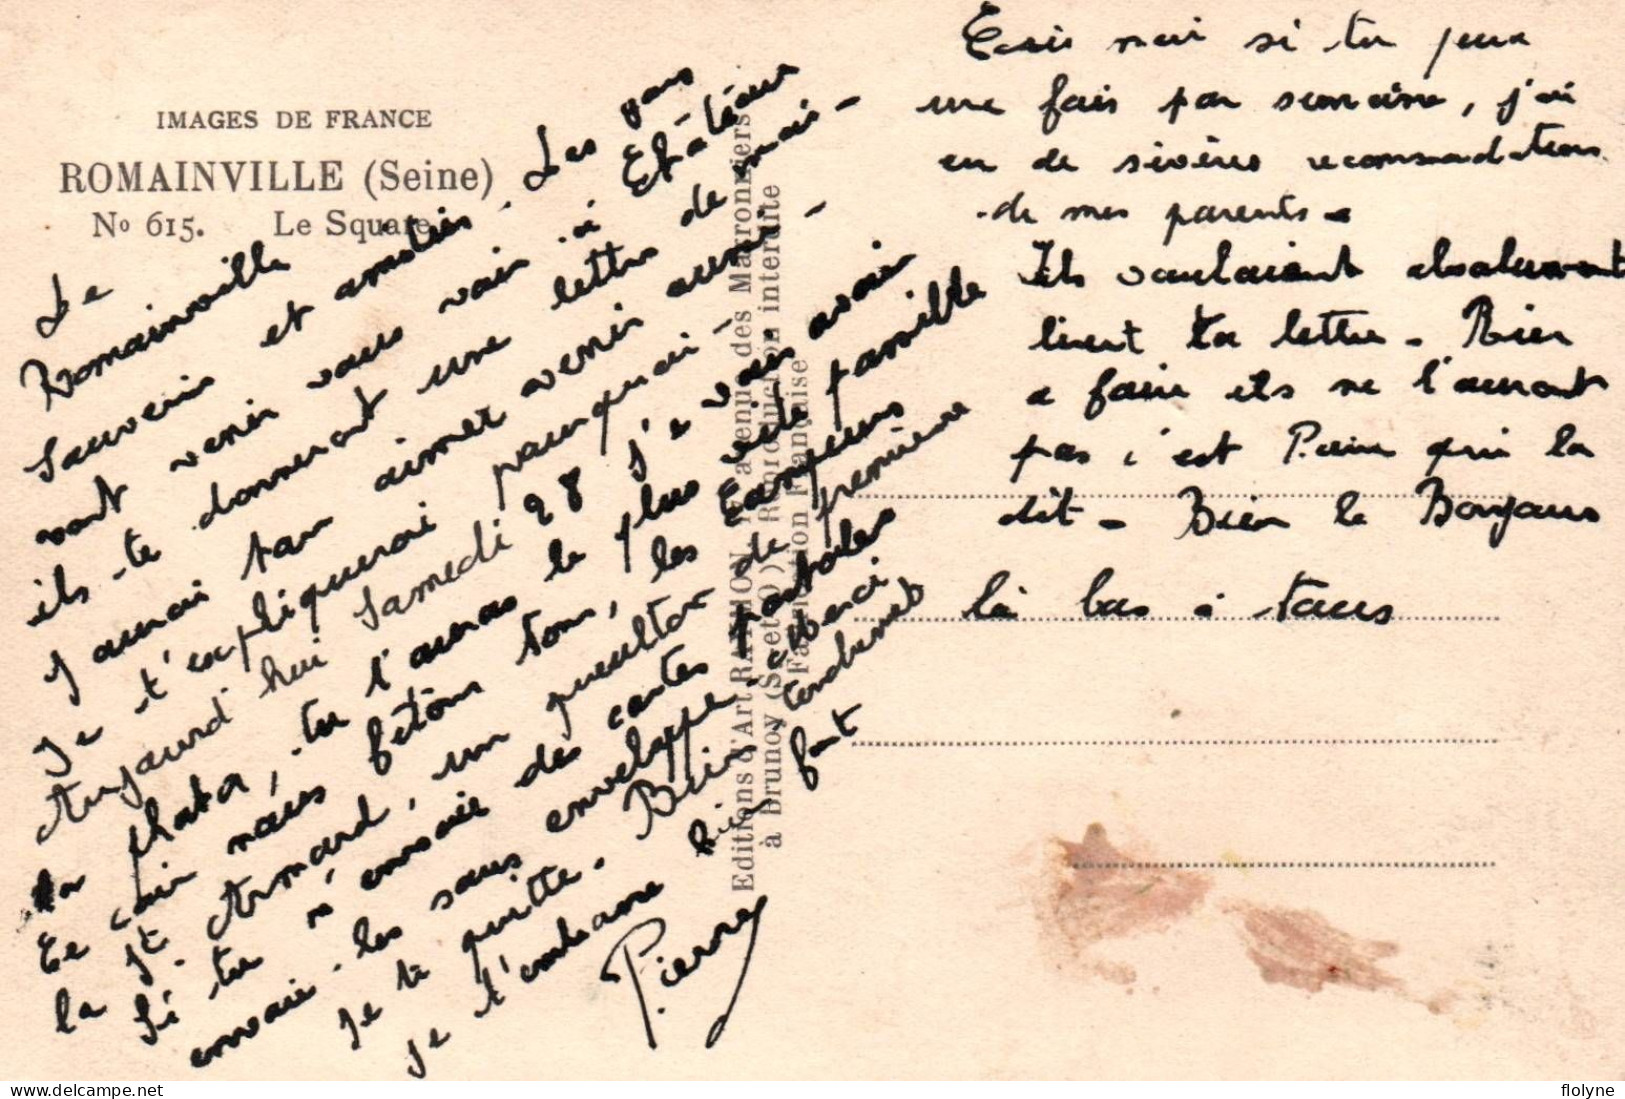 IMAGES DE FRANCE
ROMAINVILLE (Seine)
No 615. Le Square
De
Romainville
souvenir et amitiés. Les gars
vont venir vous voir à
ils te donneront une lettre de moi -
J'aurai tan aimer venir aussi -
Je t'expliquerai pourquoi -
Aujourd'hui Samedi 28 je vais avoir
la photo, tu l'auras le plus vite possible
Ce soir nous fetons tous, les
la St Armand, un gueulton de première
Si tu m'envoie des cartes postales
envoie-les sous enveloppe.
Je te quitte. Bien tendrement
Je t'embrasse bien fort
Pierre
Editions d'Art RAYMON, avenue des Marronniers
à Brunoy (S. et O.) Reproduction interdite
Fabrication Française
Ecris moi si tu peux
une fois par semaine, j'ai
eu de sévères recommandations
de mes parents -
Ils voulaient absolument
lirent ta lettre - Rien
a faire ils ne l'auront
pas c'est qui la
dit - Bien le Bonjours
là bas à tous
https://www.delcampe.net
flolyne